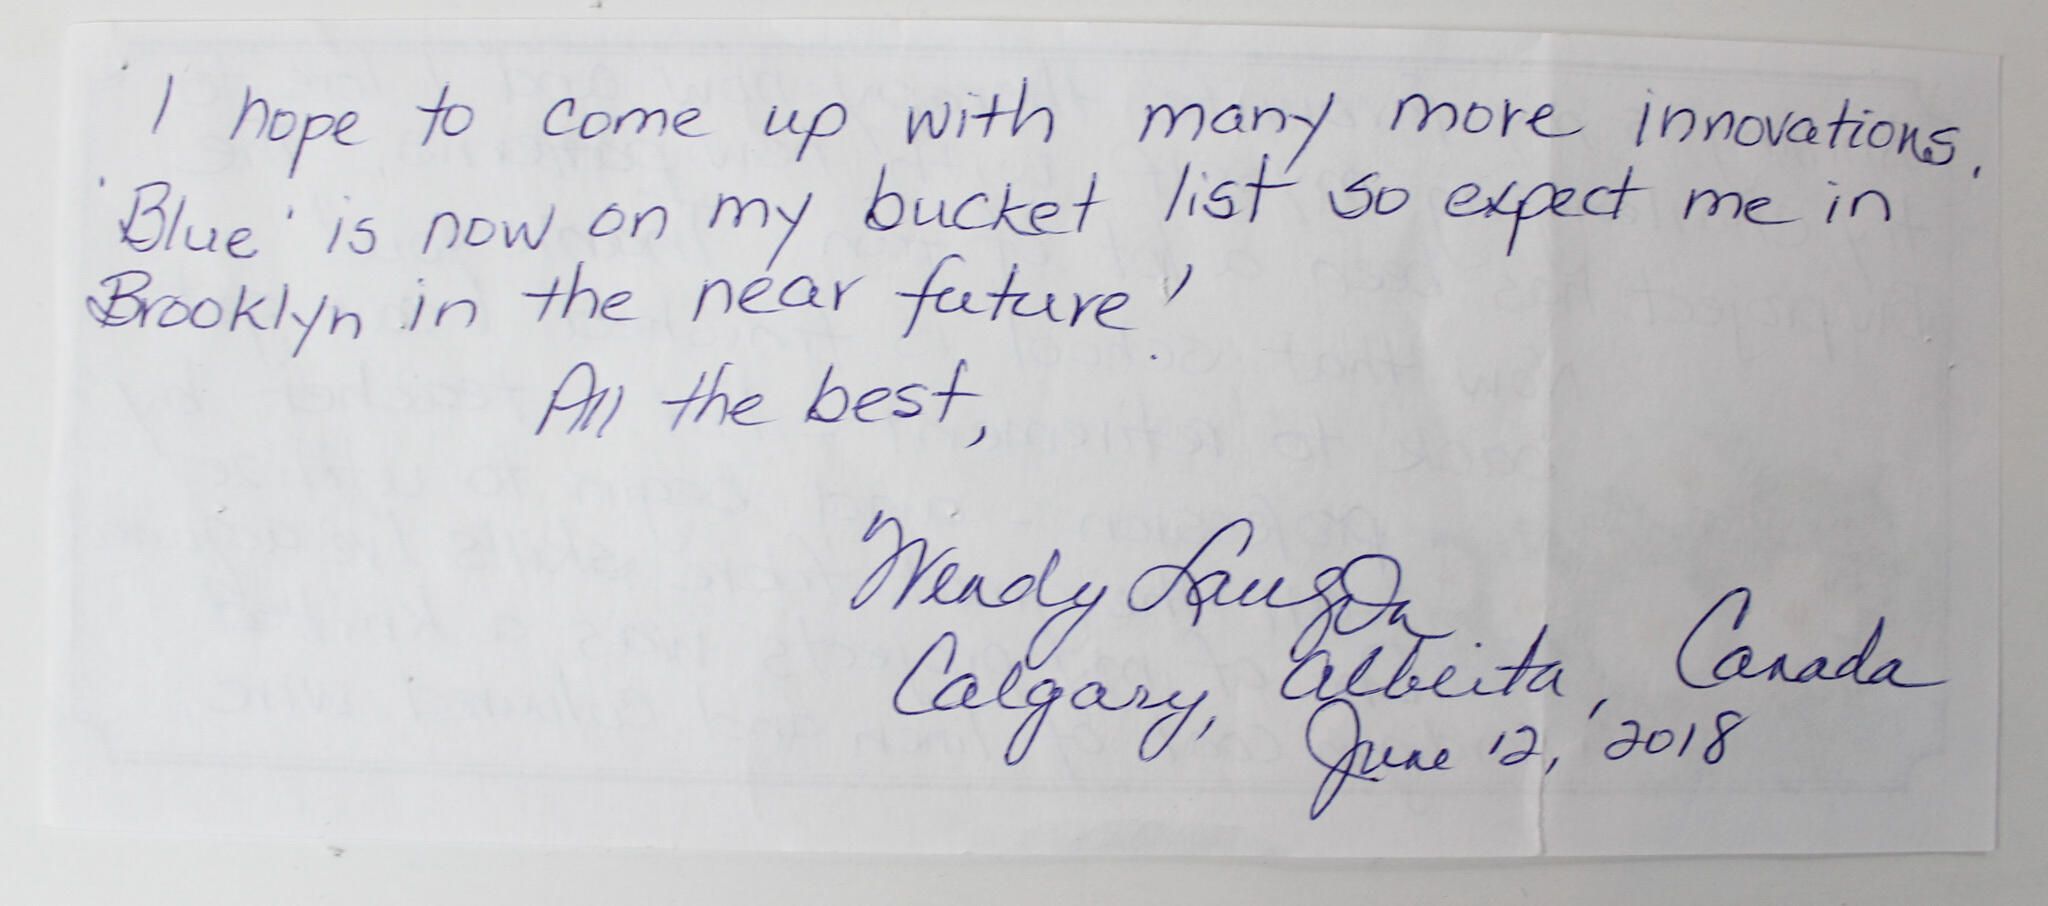 I hope to come up with many more innovations.
'Blue' is now on my bucket list so expect me in
Brooklyn in the near future!
All the best,
Wendy
Calgary, Alberta, Canada
June 12, 2018